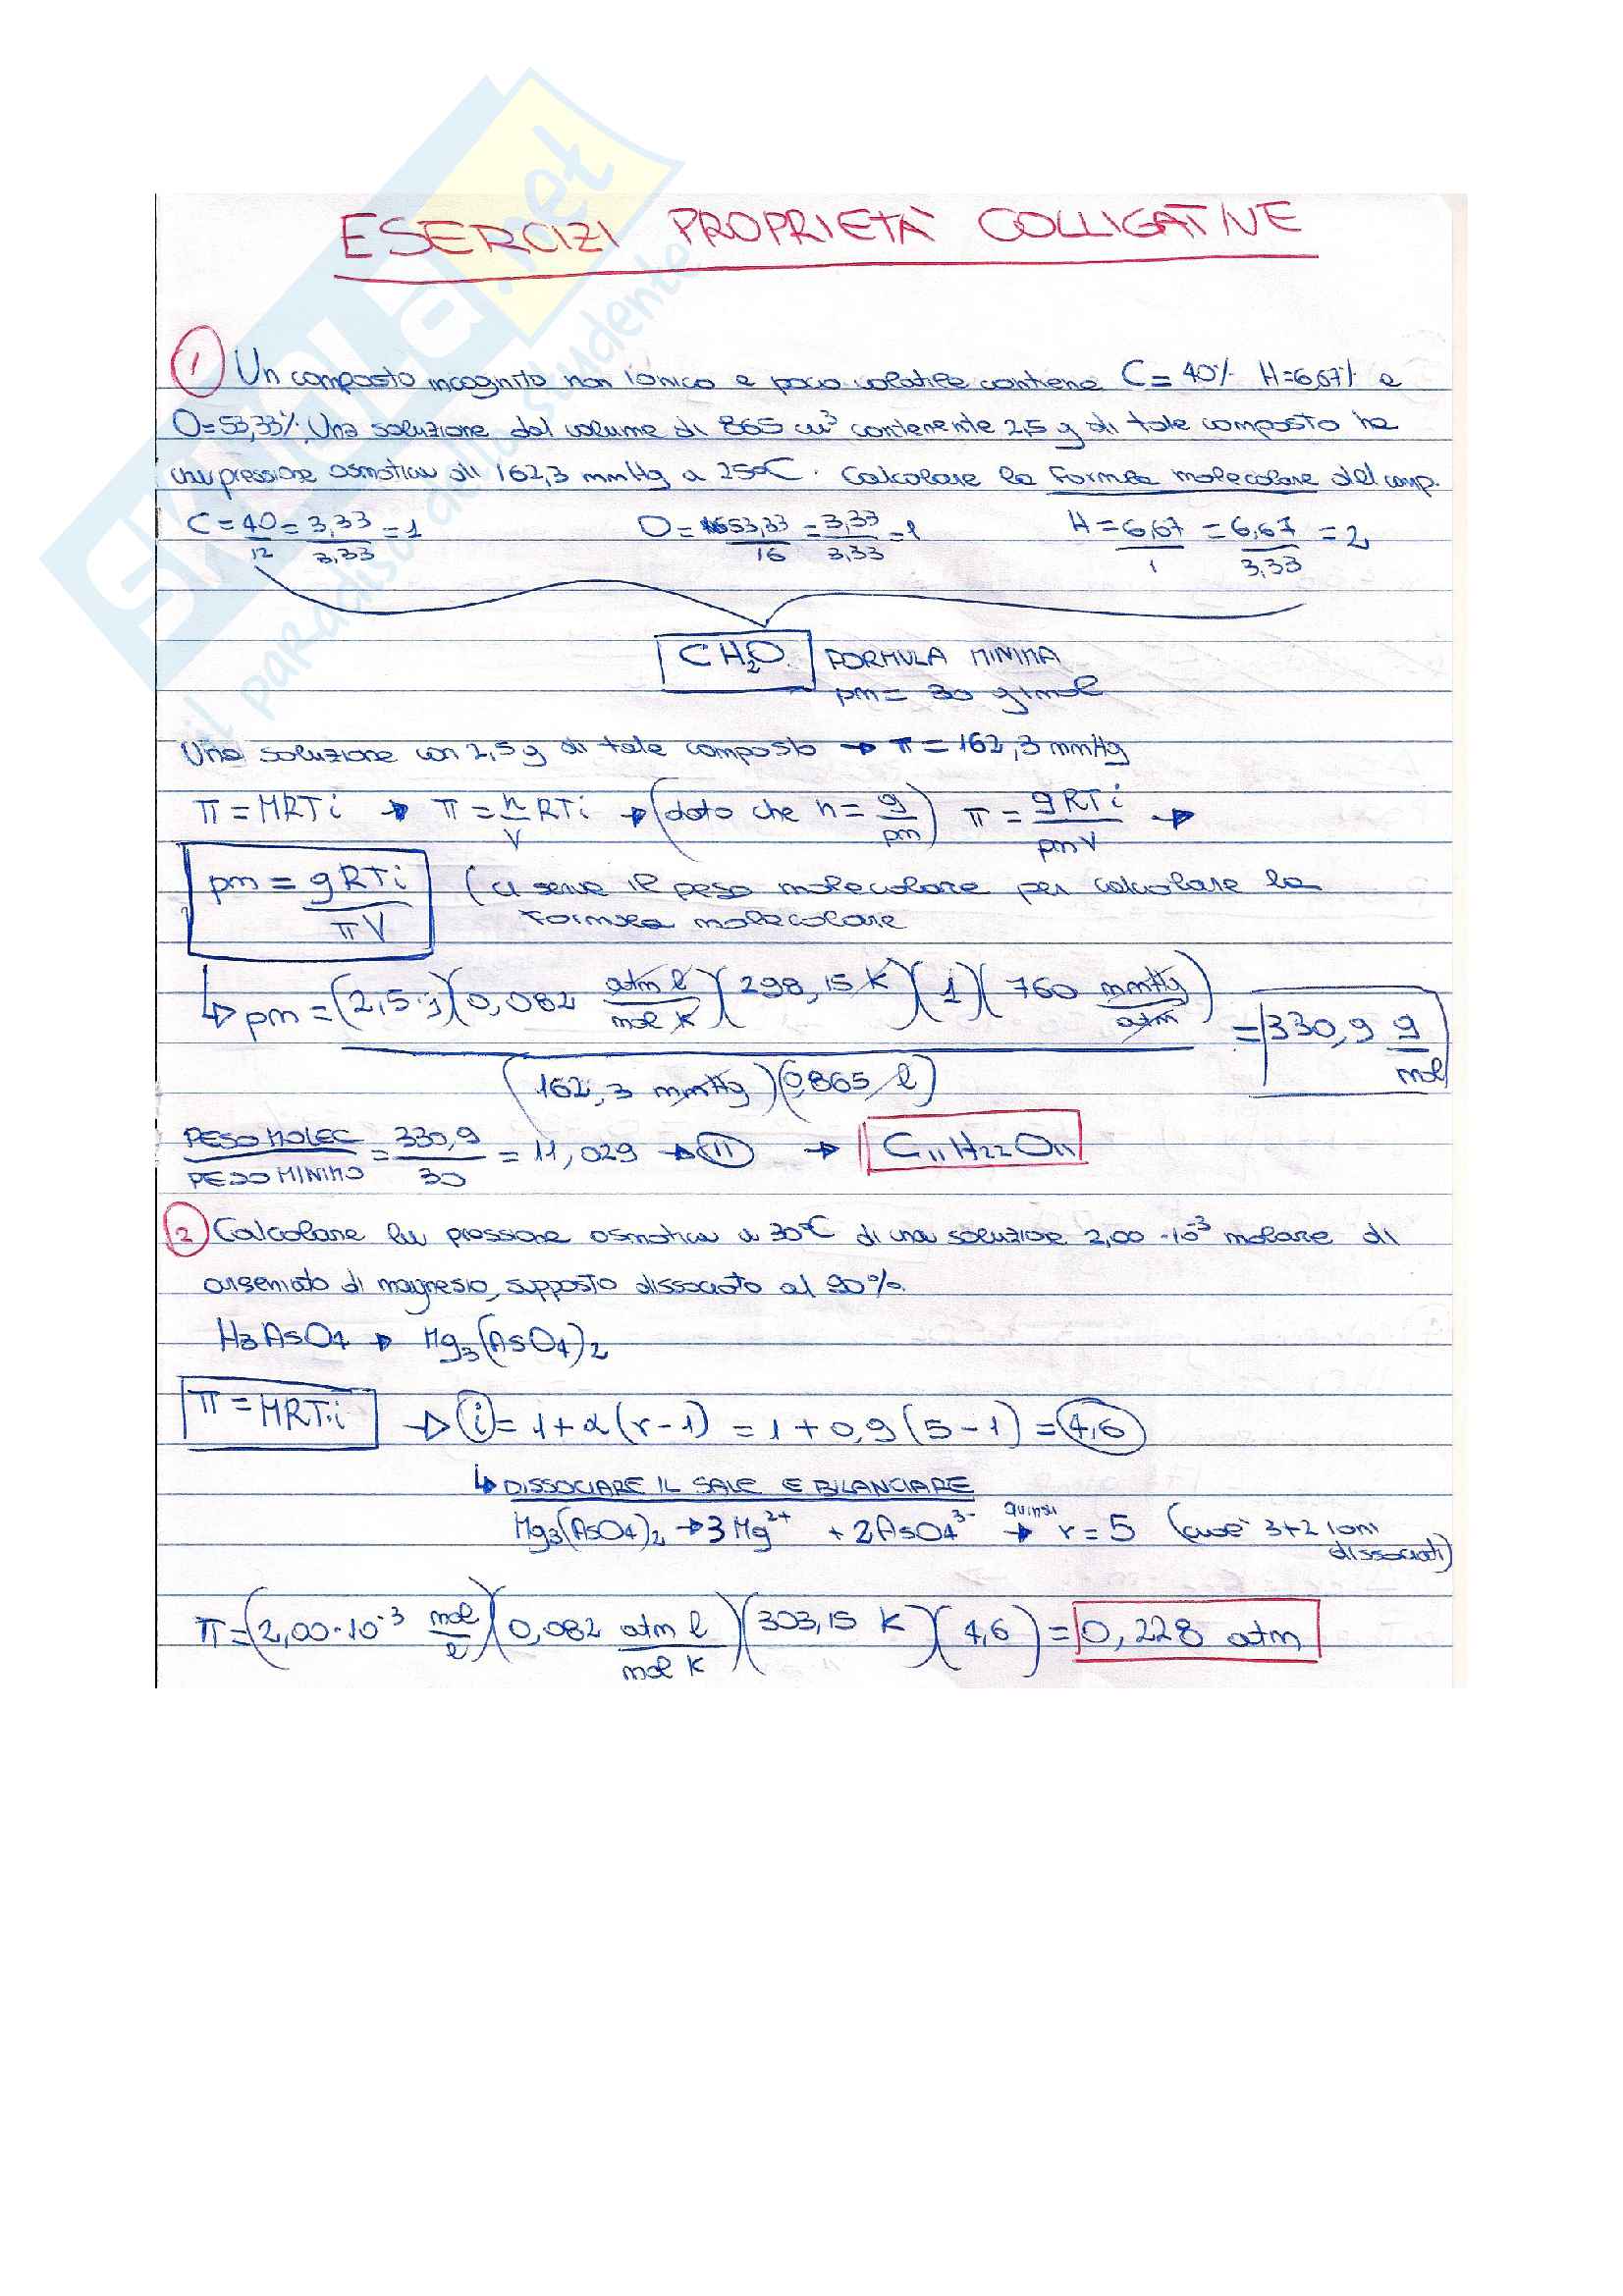 ESERCIZI PROPRIETÀ COLLIGATIVE
1 Un composto incognito non ionico e poco volatile contiene C=40% H=6,67% e
O=53,33%. Una soluzione dal volume di 865 cm³ contenente 2,5 g di tale composto ha
una pressione osmotica di 162,3 mmHg a 25°C. Calcolare la formula molecolare del comp.
C = 40/12 = 3,33/3,33 = 1 O = 53,33/16 = 3,33/3,33 = 1 H = 6,67/1 = 6,67/3,33 = 2
CH₂O FORMULA MINIMA
pm = 30 g/mol
Una soluzione con 2,5 g di tale composto → π = 162,3 mmHg
π = MRTi → π = n/V RTi → (dato che n = g/pm) π = gRTi/pmV →
pm = gRTi/πV (ci serve il peso molecolare per calcolare la
formula molecolare
↳ pm = (2,5 g)(0,082 atm l/mol K)(298,15 K)(1)(760 mmHg/atm) / (162,3 mmHg)(0,865 l) = 330,9 g/mol
PESO MOLEC/PESO MINIMO = 330,9/30 = 11,029 → 11 → C₁₁H₂₂O₁₁
2 Calcolare la pressione osmotica a 30°C di una soluzione 2,00·10⁻³ molare di
arseniato di magnesio, supposto dissociato al 90%.
H₃AsO₄ → Mg₃(AsO₄)₂
π = MRT·i → i = 1+α(r-1) = 1+0,9(5-1) = 4,6
↳ DISSOCIARE IL SALE E BILANCIARE
Mg₃(AsO₄)₂ → 3Mg²⁺ + 2AsO₄³⁻ quindi → r = 5 (cioè 3+2 ioni
dissociati)
π = (2,00·10⁻³ mol/l)(0,082 atm l/mol K)(303,15 K)(4,6) = 0,228 atm
SKUOLA.net
il paradiso dello studente